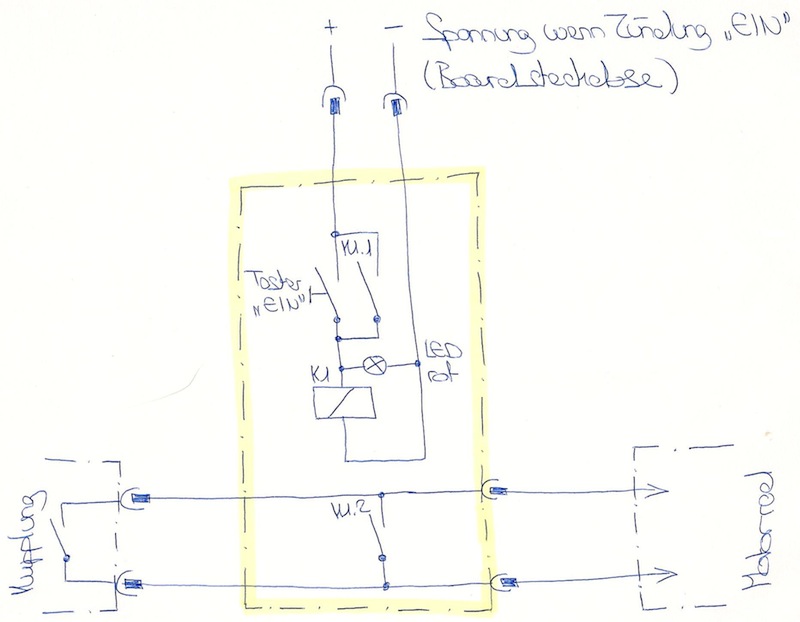 + − Spannung wenn Zündung „EIN"
(Boardsteckdose)
K1.1
Taster
„EIN"
LED
rot
K1
K1.2
Kupplung
Motorrad